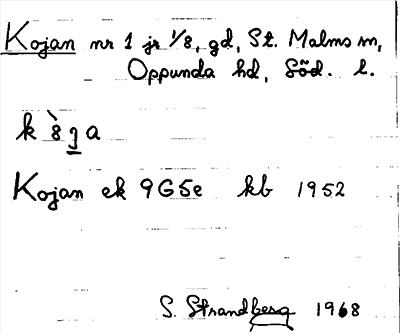 Kojan nr 1 jr 1/8, gd, St. Malms sn,
Oppunda hd, Söd. l.
Kojan ek 9G5e kb 1952
S. Strandberg 1968